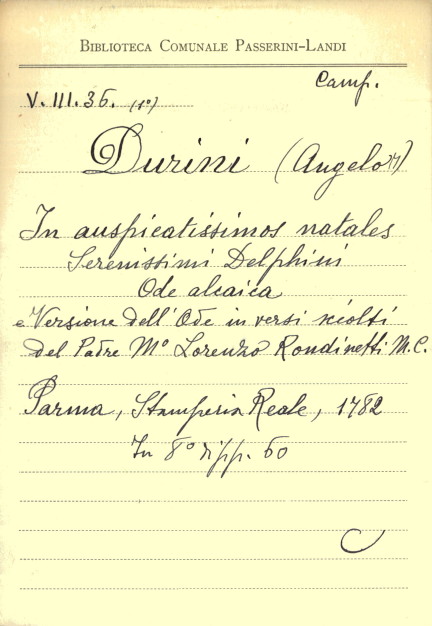 BIBLIOTECA COMUNALE PASSERINI-LANDI
Camp.
V. III. 36. (1°)
Durini (Angelo M)
In auspicatissimos natales
Serenissimi Delphini
Ode alcaica
e Versione dell'Ode in versi sciolti
del Padre M° Lorenzo Rondinetti M.C.
Parma, Stamperia Reale, 1782
In 8° di pp. 60
C